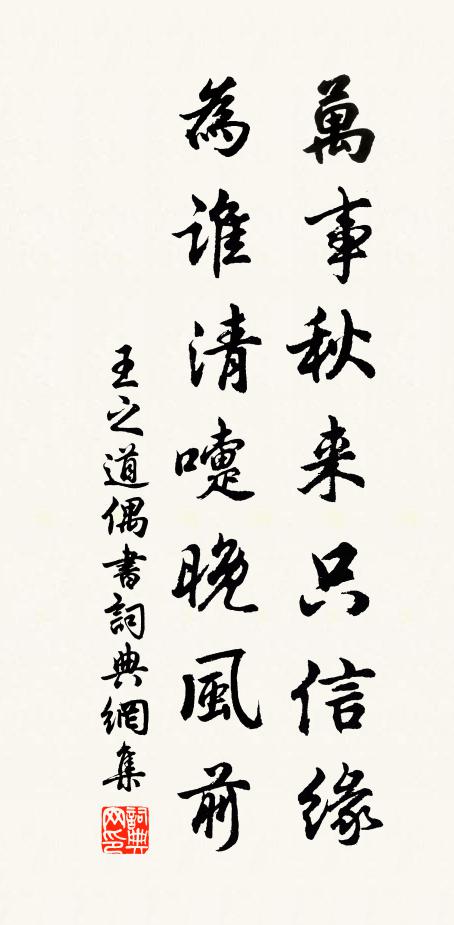 萬事秋来只信緣
為誰清嚏晚風前
王之道偶書詞典網集
詞典网印